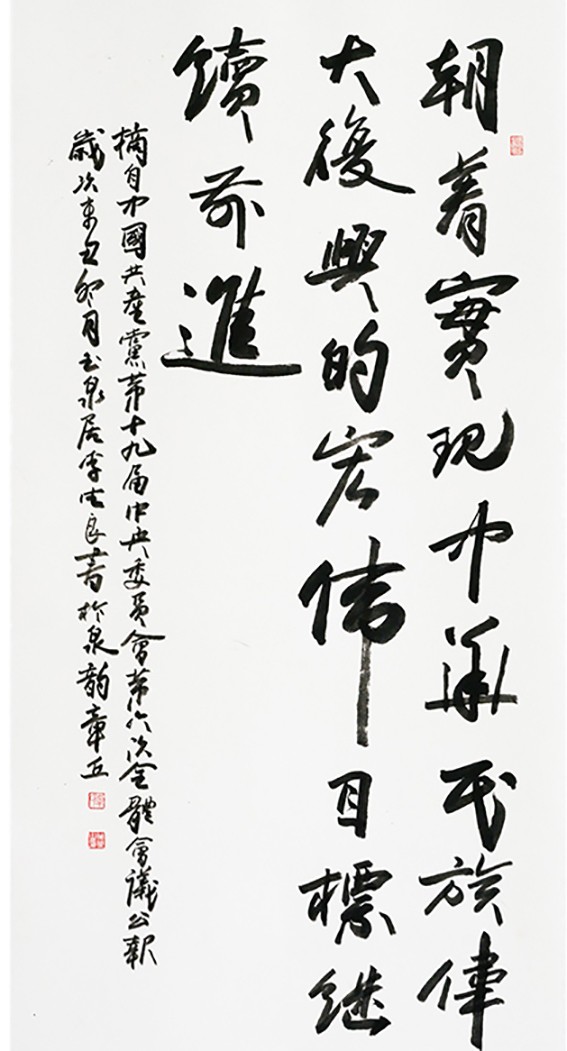 朝着實現中華民族偉
大復興的宏偉目標繼
續前進
摘自中國共產黨第十九屆中央委員會第六次全體會議公報
歲次辛丑冬月玉泉居李
良書於泉韵章丘